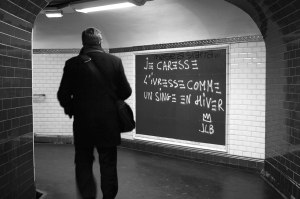 JE CARESSE
L'IVRESSE COMME
UN SINGE EN HIVER
JCB